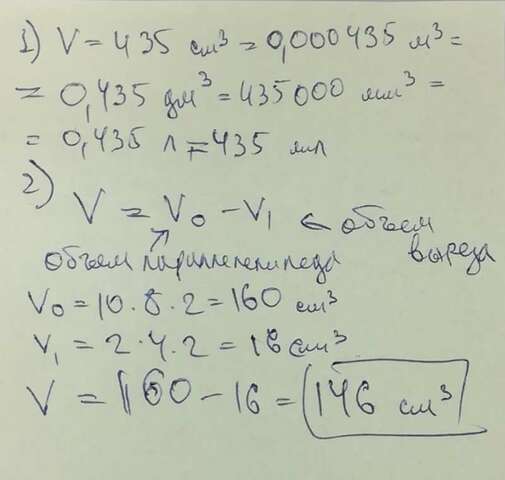 1) V = 435 см³ = 0,000435 м³ =
= 0,435 дм³ = 435000 мм³ =
= 0,435 л = 435 мл
2)
V = V₀ - V₁ ← объем
объем параллелепипеда выреза
V₀ = 10 · 8 · 2 = 160 см³
V₁ = 2 · 4 · 2 = 16 см³
V = 160 - 16 = 146 см³